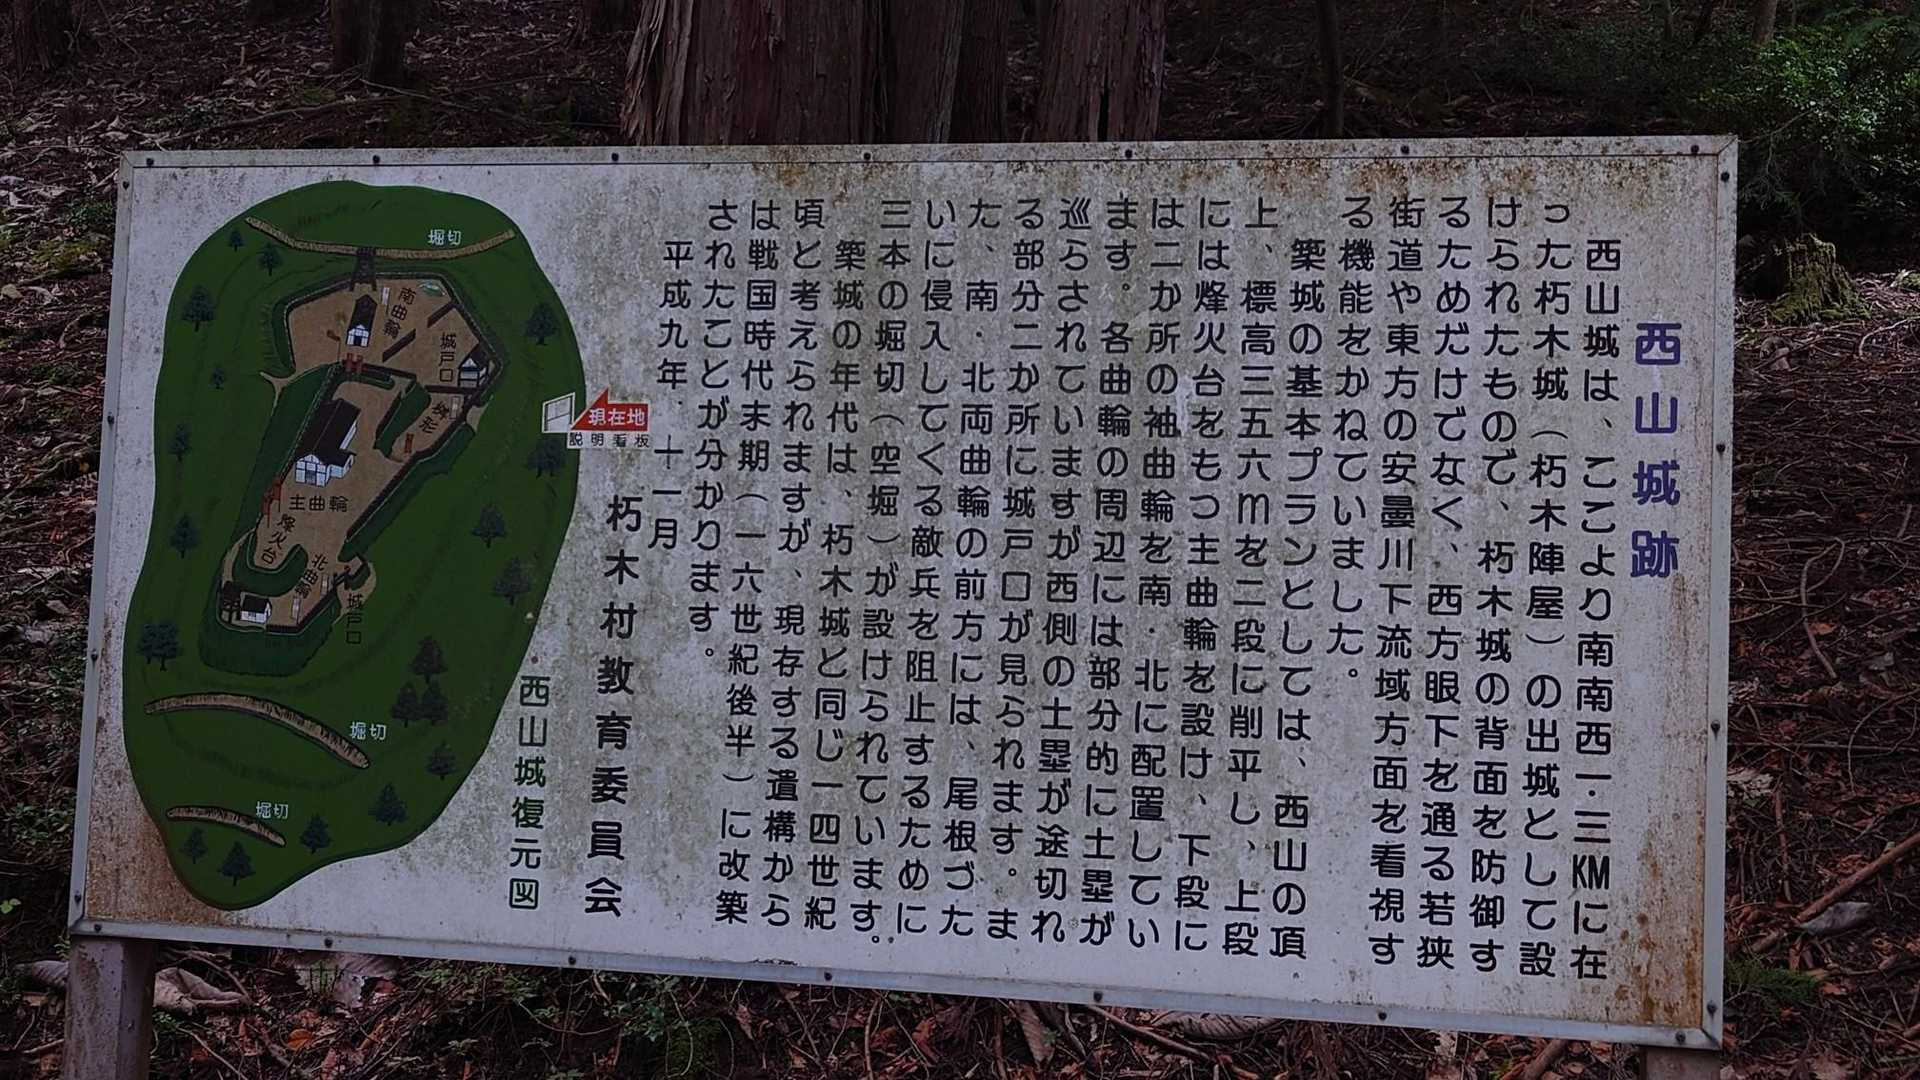 西山城跡
西山城は、ここより南南西一・三KMに在
った朽木城（朽木陣屋）の出城として設
けられたもので、朽木城の背面を防御す
るためだけでなく、西方眼下を通る若狭
街道や東方の安曇川下流域方面を看視す
る機能をかねていました。
築城の基本プランとしては、西山の頂
上、標高三五六mを二段に削平し、上段
には烽火台をもつ主曲輪を設け、下段に
は二か所の袖曲輪を南・北に配置してい
ます。各曲輪の周辺には部分的に土塁が
巡らされていますが西側の土塁が途切れ
る部分二か所に城戸口が見られます。ま
た、南・北両曲輪の前方には、尾根づた
いに侵入してくる敵兵を阻止するために
三本の堀切（空堀）が設けられています。
築城の年代は、朽木城と同じ一四世紀
頃と考えられますが、現存する遺構から
は戦国時代末期（一六世紀後半）に改築
されたことが分かります。
平成九年十一月
朽木村教育委員会
現在地
説明看板
堀切
南曲輪
城戸口
桝形
主曲輪
烽火台
北曲輪
城戸口
堀切
堀切
西山城復元図